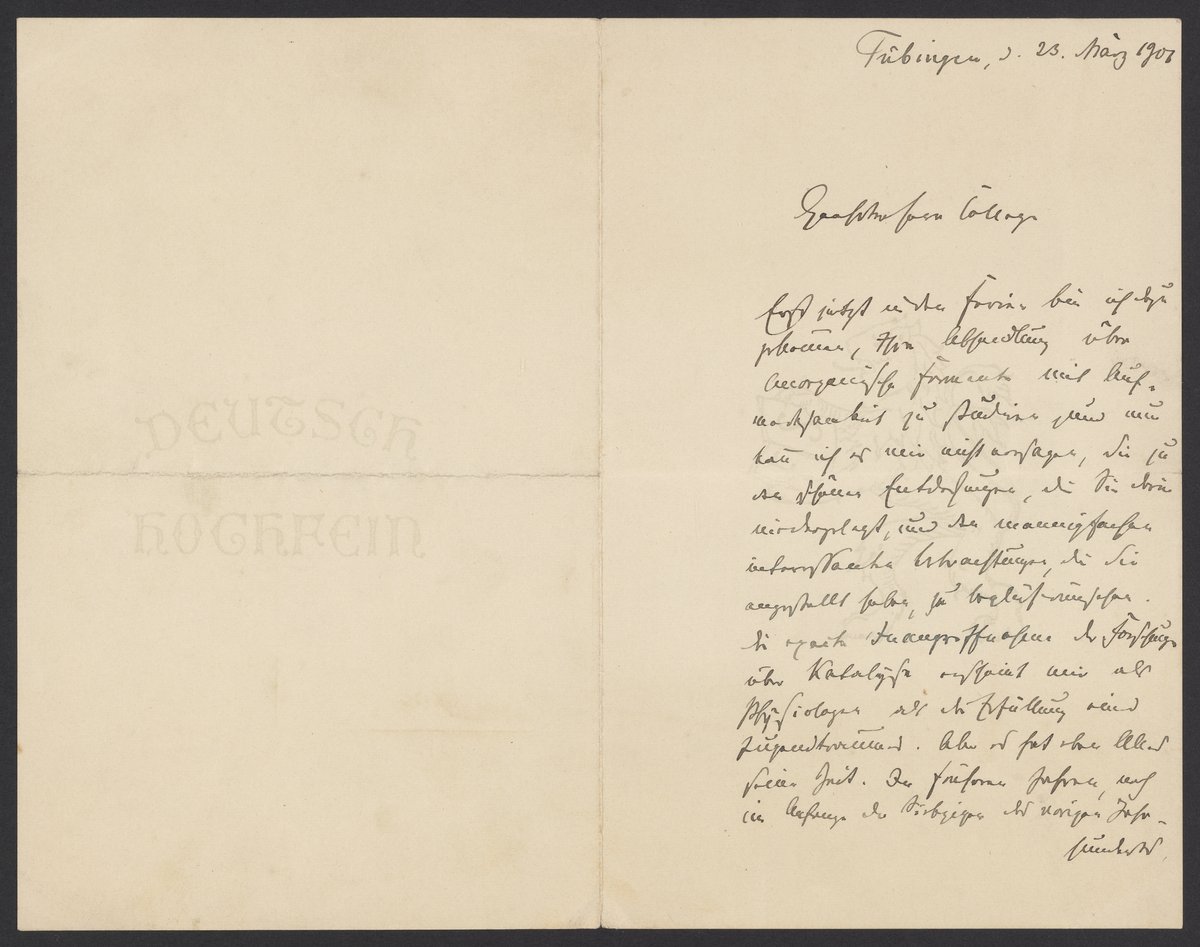 DEUTSCH
HOCHFEIN
Tübingen, d. 23. März 1901
Geehrtester Herr College
Erst jetzt in den Ferien bin ich dazu
gekommen, Ihre Abhandlung über
Anorganische Fermente mit Auf-
merksamkeit zu studieren und nun
kann ich es mir nicht versagen, Sie zu
den schönen Entdeckungen, die Sie darin
niedergelegt, und den mannigfachen
interessanten Betrachtungen, die Sie
angestellt haben, zu beglückwünschen.
Die exacte Inangriffnahme der Forschungen
über Katalyse erscheint mir als
Physiologen als die Erfüllung eines
Jugendtraumes. Aber es hat eben Alles
seine Zeit. In früheren Jahren, noch
im Anfange der Siebziger des vorigen Jahr-
hunderts,